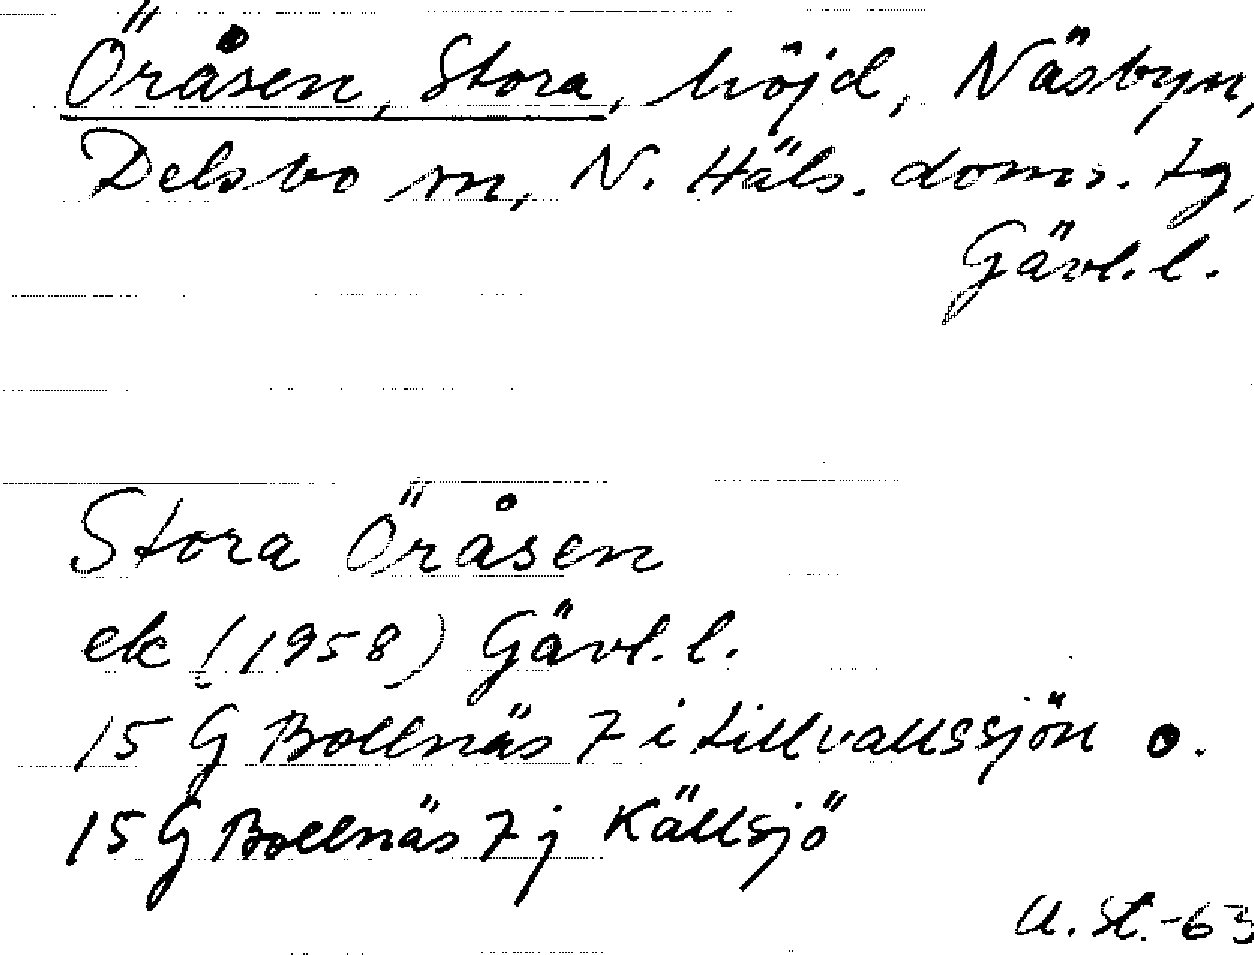 Öråsen, Stora, höjd, Näsbyn,
Delsbo sn, N. Häls. doms. tg,
Gävl. l.
Stora Öråsen
ek (1958) Gävl. l.
15 G Bollnäs 7 i tillvallssjön o.
15 G Bollnäs 7 j Källsjö
U. St. -63